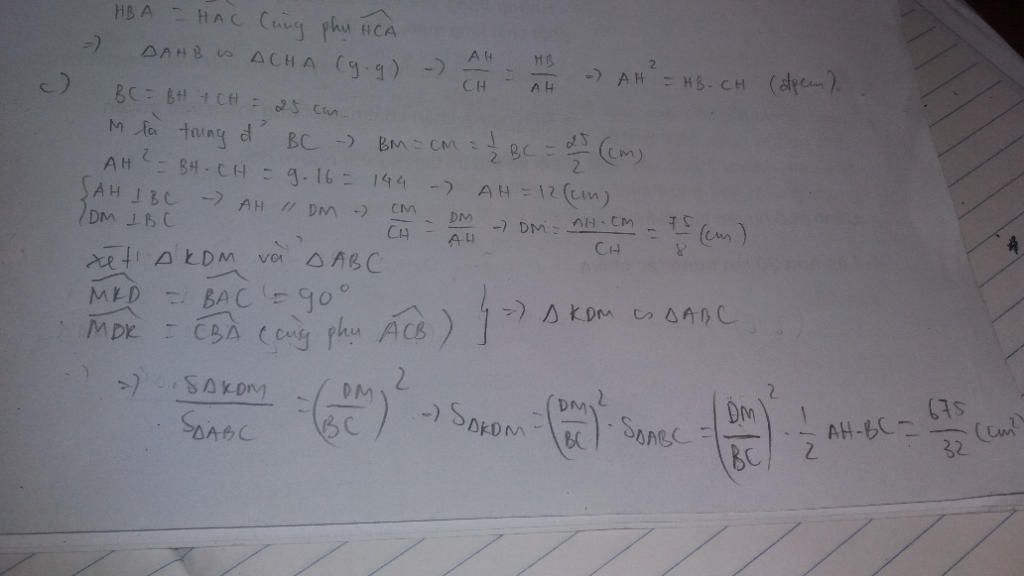 HBA = HAC (cùng phụ HCA
=> ΔAHB ∽ ΔCHA (g.g) → AH/CH = HB/AH → AH² = HB.CH (đpcm).
c) BC = BH + CH = 25 cm.
M là trung đ' BC → BM = CM = 1/2 BC = 25/2 (cm)
AH² = BH.CH = 9.16 = 144 → AH = 12 (cm)
{ AH ⊥ BC
DM ⊥ BC → AH // DM → CM/CH = DM/AH → DM = AH.CM/CH = 75/8 (cm)
xét ΔKDM và ΔABC
MKD = BAC = 90°
MDK = CBA (cùng phụ ACB) } => ΔKDM ∽ ΔABC
=> SΔKDM/SΔABC = (DM/BC)² → SΔKDM = (DM/BC)² . SΔABC = (DM/BC)² . 1/2 AH.BC = 675/32 (cm²